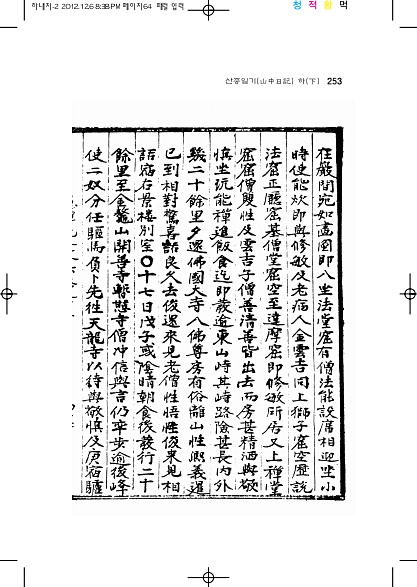 하내지-2 2012.12.6 8:38 PM 페이지64 패럴 입력
청 적 황 먹
산중일기(山中日記) 하(下) 253
在巖間宛如畵圖即入坐法堂庭有僧法能設席相迎坐小
時使能炊即與修敏及老病人金雲吉同上獅子窟空虛說
法窟正風窟基僧堂窟空至達摩窟即修敏所居又上禪堂
窟窟僧發性及雲吉子僧善淸善皆出去兩房甚精洒與敬
愼坐玩能禪進飯食迄即發逾東山峙其峙路險甚長內外
幾二十餘里夕還佛國大寺入佛尊房有俗離山性熙義還
已到相對驚喜話良久去俊還來見老僧性悟性俊來見相
語宿右景樓別室〇十七日戊子或陰晴朝食後發行二十
餘里至金鰲山開善寺暫憩寺僧冲信與言仍率步逾後峰
使二奴分任驅馬負卜先往天龍寺以待與敬愼及庚宿驢